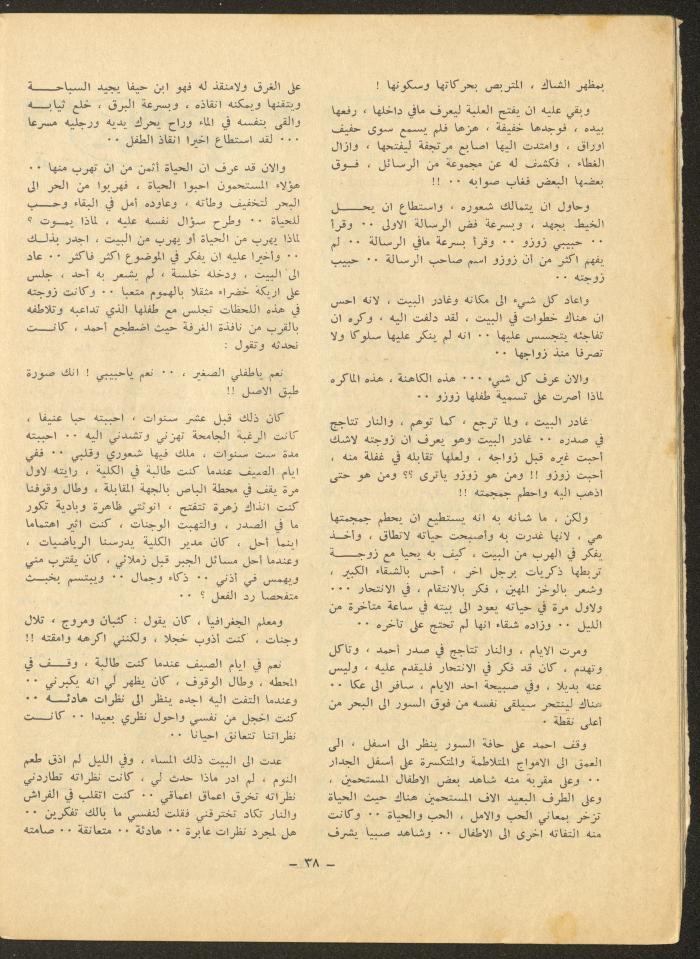 بمظهر الشاك ، المتربص بحركاتها وسكونها !
وبقي عليه ان يفتح العلبة ليعرف مافي داخلها ، رفعها
بيده ، فوجدها خفيفة ، هزها فلم يسمع سوى حفيف
اوراق ، وامتدت اليها اصابع مرتجفة ليفتحها ، وازال
الغطاء ، فكشف له عن مجموعة من الرسائل ، فوق
بعضها البعض فغاب صوابه ٠٠ !!
وحاول ان يتمالك شعوره ، واستطاع ان يحل
الخيط بجهد ، وبسرعة فض الرسالة الاولى ٠٠ وقرأ
٠٠ حبيبي زوزو ٠٠ وقرأ بسرعة مافي الرسالة ٠٠ لم
يفهم اكثر من أن زوزو اسم صاحب الرسالة ٠٠ حبيب
زوجته ٠٠
واعاد كل شيء الى مكانه وغادر البيت ، لانه احس
ان هناك خطوات في البيت ، لقد دلفت اليه ، وكره ان
تفاجئه يتجسس عليها ٠٠ انه لم ينكر عليها سلوكا ولا
تصرفا منذ زواجها ٠٠
والان عرف كل شيء ٠٠٠ هذه الكاهنة ، هذه الماكره
لماذا أصرت على تسمية طفلها زوزو ٠٠
غادر البيت ، ولما ترجع ، كما توهم ، والنار تتاجج
في صدره ٠٠ غادر البيت وهو يعرف ان زوجته لاشك
أحبت غيره قبل زواجه ، ولعلها تقابله في غفلة منه ،
أحبت زوزو !! ومن هو زوزو ياترى ؟؟ ومن هو حتى
اذهب اليه واحطم جمجمته !!
ولكن ، ما شأنه به انه يستطيع ان يحطم جمجمتها
هي ، لانها غدرت به وأصبحت حياته لاتطاق ، وأخذ
يفكر في الهرب من البيت ، كيف به يحيا مع زوجة
تربطها ذكريات برجل اخر ، أحس بالشقاء الكبير ،
وشعر بالوخز المهين ، فكر بالانتقام ، في الانتحار ٠٠٠
ولاول مرة في حياته يعود الى بيته في ساعة متأخرة من
الليل ٠٠ وزاده شقاء انها لم تحتج على تأخره ٠٠
ومرت الايام ، والنار تتاجج في صدر أحمد ، وتاكل
وتهدم ، كان قد فكر في الانتحار فليقدم عليه ، وليس
عنه بديلا ، وفي صبيحة احد الايام ، سافر الى عكا ٠٠
هناك لينتحر سيلقي نفسه من فوق السور الى البحر من
أعلى نقطة ٠
وقف احمد على حافة السور ينظر الى اسفل ، الى
العمق الى الامواج المتلاطمة والمتكسرة على أسفل الجدار
٠٠ وعلى مقربة منه شاهد بعض الاطفال المستحمين ،
وعلى الطرف البعيد الاف المستحمين هناك حيث الحياة
تزخر بمعاني الحب والامل ، الحب والحياة ٠٠ وكانت
منه التفاته اخرى الى الاطفال ٠٠ وشاهد صبيا يشرف
على الغرق ولامنقذ له فهو ابن حيفا يجيد السباحة
ويتقنها ويمكنه انقاذه ، وبسرعة البرق ، خلع ثيابه
والقى بنفسه في الماء وراح يحرك يديه ورجليه مسرعا
٠٠٠ لقد استطاع اخيرا انقاذ الطفل ٠٠
والان قد عرف ان الحياة أثمن من ان تهرب منها ٠٠
هؤلاء المستحمون احبوا الحياة ، فهربوا من الحر الى
البحر لتخفيف وطأته ، وعاوده أمل في البقاء وحب
للحياة ٠٠ وطرح سؤال نفسه عليه ، لماذا يموت ؟
لماذا يهرب من الحياة أو يهرب من البيت ، اجدر بذلك
٠٠ وأخيرا عليه ان يفكر في الموضوع اكثر فاكثر ٠٠ عاد
الى البيت ، ودخله خلسة ، لم يشعر به أحد ، جلس
على اريكة خضراء مثقلا بالهموم متعبا ٠٠ وكانت زوجته
في هذه اللحظات تجلس مع طفلها الذي تداعبه وتلاطفه
بالقرب من نافذة الغرفة حيث اضطجع أحمد ، كانت
تحدثه وتقول :
نعم ياطفلي الصغير ، ٠٠ نعم ياحبيبي ! انك صورة
طبق الاصل !!
كان ذلك قبل عشر سنوات ، احببته حبا عنيفا ،
كانت الرغبة الجامحة تهزني وتشدني اليه ٠٠ احببته
مدة ست سنوات ، ملك فيها شعوري وقلبي ٠٠ ففي
ايام الصيف عندما كنت طالبة في الكلية ، رايته لاول
مرة يقف في محطة الباص بالجهة المقابلة ، وطال وقوفنا
كنت انذاك زهرة تتفتح ، انوثتي ظاهرة وبادية تكور
ما في الصدر ، والتهبت الوجنات ، كنت اثير اهتماما
اينما أحل ، كان مدير الكلية يدرسنا الرياضيات ،
وعندما أحل مسائل الجبر قبل زملائي ، كان يقترب مني
ويهمس في أذني ٠٠ ذكاء وجمال ٠٠ ويبتسم بخبث
متفحصا رد الفعل ؟ ٠٠
ومعلم الجغرافيا ، كان يقول : كثبان ومروج ، تلال
وجنات ، كنت أذوب خجلا ، ولكنني اكرهه وامقته !!
نعم في ايام الصيف عندما كنت طالبة ، وقف في
المحطه ، وطال الوقوف ، كان يظهر لي انه يكبرني ٠٠
وعندما التفت اليه اجده ينظر الى نظرات هادئه ٠٠
كنت اخجل من نفسي واحول نظري بعيدا ٠٠ كانت
نظراتنا تتعانق احيانا ٠٠
عدت الى البيت ذلك المساء ، وفي الليل لم اذق طعم
النوم ، لم ادر ماذا حدث لي ، كانت نظراته تطاردني
نظراته تخرق اعماق اعماقي ٠٠ كنت اتقلب في الفراش
والنار تكاد تخترقني فقلت لنفسي ما بالك تفكرين ٠٠
هل لمجرد نظرات عابرة ٠٠ هادئة ٠٠ متعانقة ٠٠ صامته
— ٣٨ —